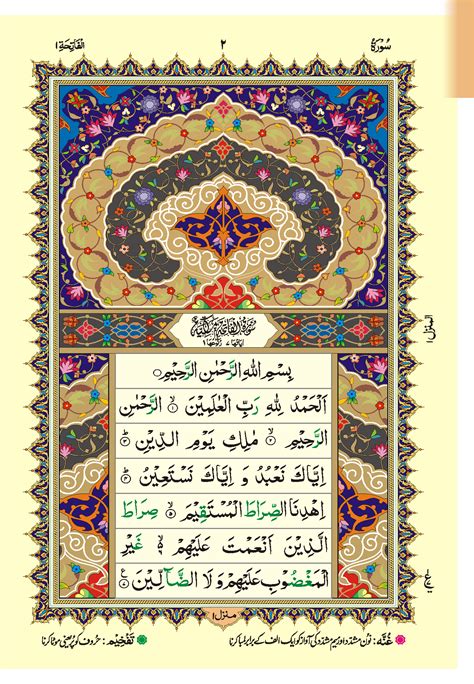 سُوْرَةُ ٢ اَلْفَاتِحَة ١
سُوْرَةُ الْفَاتِحَةِ مَكِّيَّةٌ
اٰيَاتُهَا ٧ رُكُوْعُهَا ١
بِسْمِ اللّٰهِ الرَّحْمٰنِ الرَّحِيْمِ ○
اَلْحَمْدُ لِلّٰهِ رَبِّ الْعٰلَمِيْنَ ۙ﴿١﴾ الرَّحْمٰنِ
الرَّحِيْمِ ۙ﴿٢﴾ مٰلِكِ يَوْمِ الدِّيْنِ ؕ﴿٣﴾
اِيَّاكَ نَعْبُدُ وَ اِيَّاكَ نَسْتَعِيْنُ ؕ﴿٤﴾
اِهْدِنَا الصِّرَاطَ الْمُسْتَقِيْمَ ۙ﴿٥﴾ صِرَاطَ
الَّذِيْنَ اَنْعَمْتَ عَلَيْهِمْ ۙ۬﴿٦﴾ غَيْرِ
الْمَغْضُوْبِ عَلَيْهِمْ وَ لَا الضَّآلِّيْنَ ﴿٧﴾
المنزل ١
منزل ١
غُنَّہ: نون مشدّد اور میم مشدّد کی آواز کو ایک الف کے برابر لمبا کرنا تَفْخِیْم: حروف کو پُر یعنی موٹا کرنا